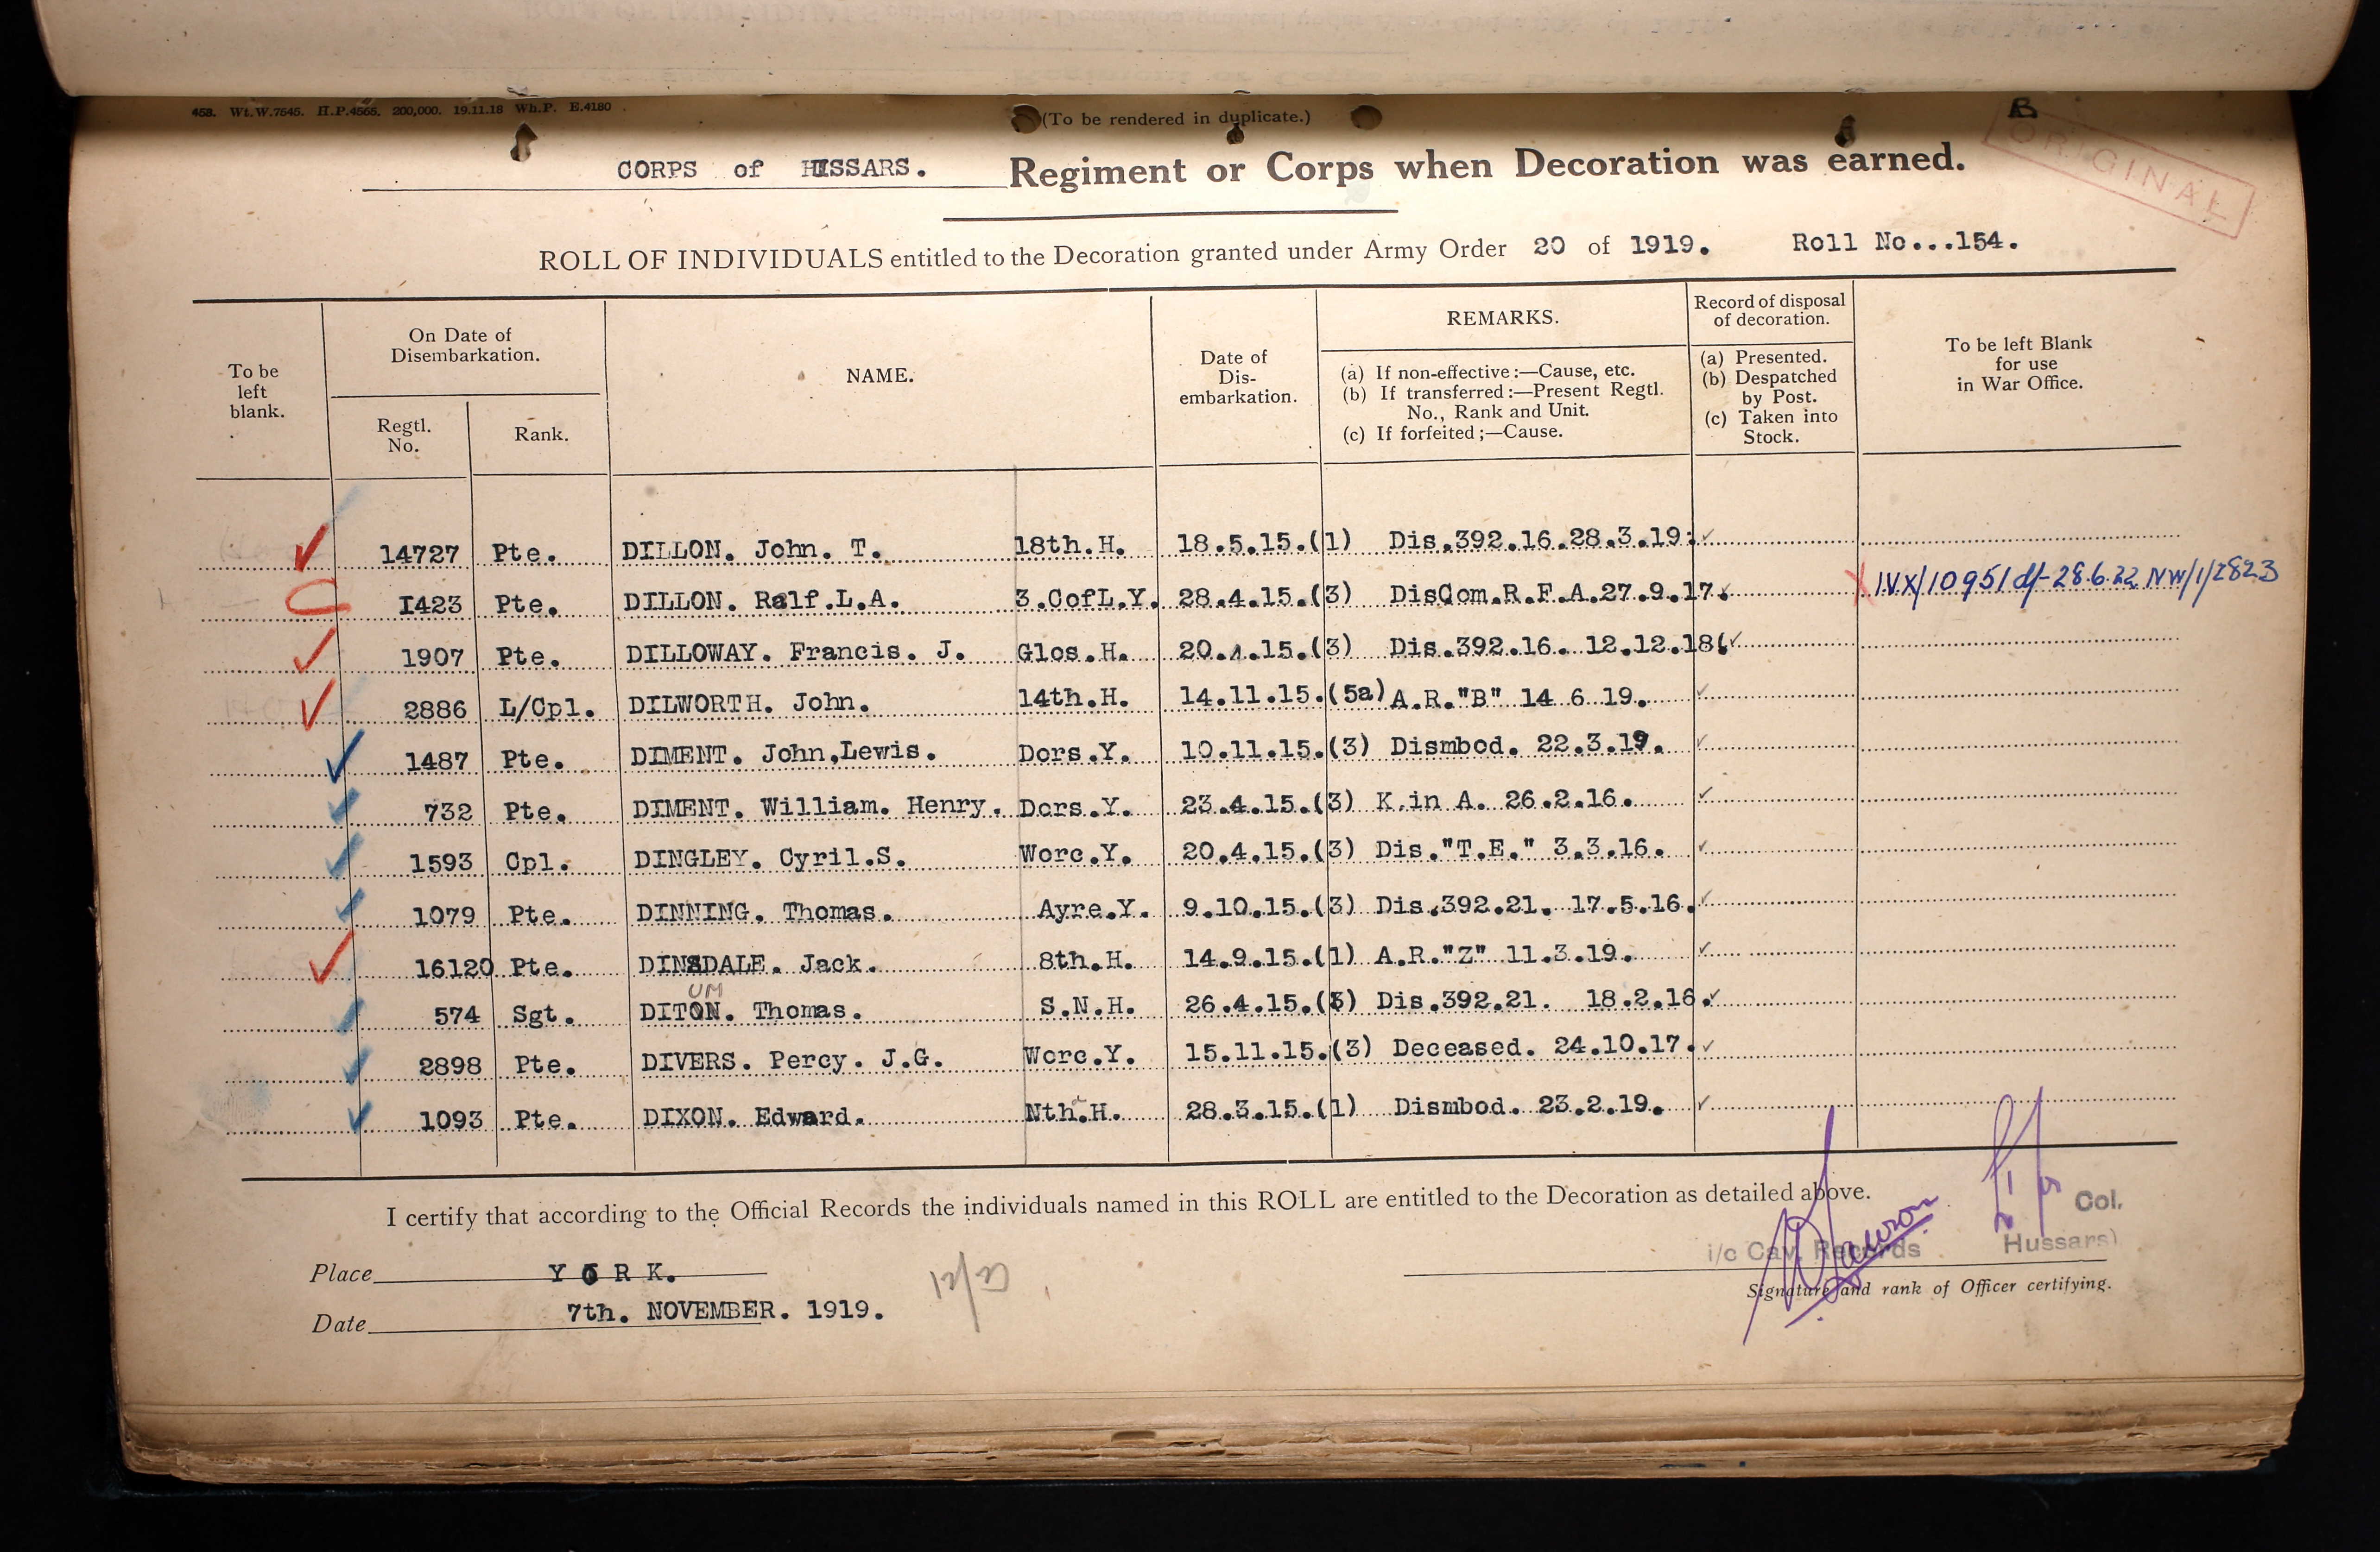 458. Wt.W.7545. H.P.4565. 200,000. 19.11.18 Wh.P. E.4180
(To be rendered in duplicate.)
B
ORIGINAL
CORPS of HUSSARS. Regiment or Corps when Decoration was earned.
ROLL OF INDIVIDUALS entitled to the Decoration granted under Army Order 20 of 1919. Roll No...154.
To be left blank.
On Date of Disembarkation.
Regtl. No.
Rank.
NAME.
Date of Dis-embarkation.
REMARKS.
(a) If non-effective:—Cause, etc.
(b) If transferred:—Present Regtl. No., Rank and Unit.
(c) If forfeited;—Cause.
Record of disposal of decoration.
(a) Presented.
(b) Despatched by Post.
(c) Taken into Stock.
To be left Blank for use in War Office.
14727 Pte. DILLON. John. T. 18th.H. 18.5.15.(1) Dis.392.16.28.3.19.
1423 Pte. DILLON. Ralf.L.A. 3.CofL.Y. 28.4.15.(3) DisCom.R.F.A.27.9.17. X IVX/10951 df-28.6.22 NW/1/2823
1907 Pte. DILLOWAY. Francis. J. Glos.H. 20.4.15.(3) Dis.392.16. 12.12.18
2886 L/Cpl. DILWORTH. John. 14th.H. 14.11.15.(5a) A.R."B" 14 6.19.
1487 Pte. DIMENT. John,Lewis. Dors.Y. 10.11.15.(3) Dismbod. 22.3.19.
732 Pte. DIMENT. William. Henry. Dors.Y. 23.4.15.(3) K.in A. 26.2.16.
1593 Cpl. DINGLEY. Cyril.S. Worc.Y. 20.4.15.(3) Dis."T.E." 3.3.16.
1079 Pte. DINNING. Thomas. Ayre.Y. 9.10.15.(3) Dis.392.21. 17.5.16.
16120 Pte. DINSDALE. Jack. 8th.H. 14.9.15.(1) A.R."Z" 11.3.19.
UM
574 Sgt. DITON. Thomas. S.N.H. 26.4.15.(3) Dis.392.21. 18.2.16.
2898 Pte. DIVERS. Percy. J.G. Worc.Y. 15.11.15.(3) Deceased. 24.10.17.
1093 Pte. DIXON. Edward. Nth.H. 28.3.15.(1) Dismbod. 23.2.19.
I certify that according to the Official Records the individuals named in this ROLL are entitled to the Decoration as detailed above.
Col.
i/c Cav. Records Hussars)
Place YORK.
Signature and rank of Officer certifying.
Date 7th. NOVEMBER. 1919.